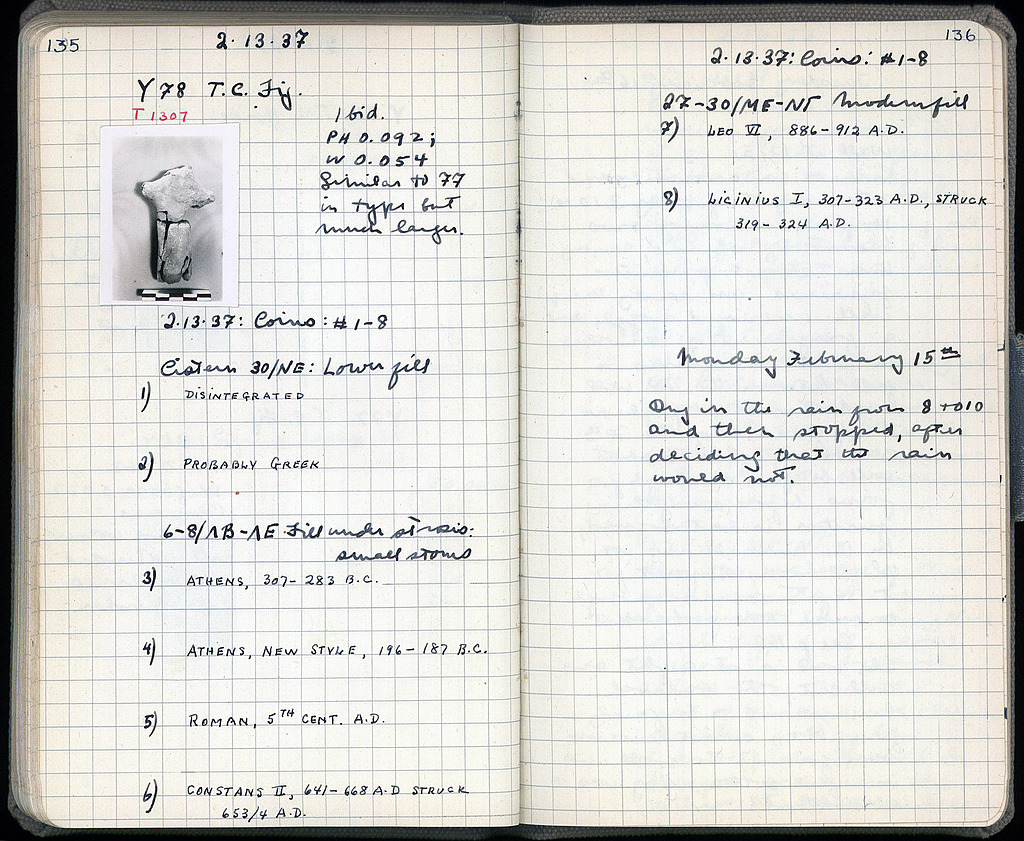 135
2·13·37
Y 78 T.C. Fig.
T 1307
Ibid.
PH 0.092;
W 0.054
Similar to 77
in type but
much larger.
2·13·37: Coins: #1-8
Cistern 30/NE: Lower fill
1) DISINTEGRATED
2) PROBABLY GREEK
6-8/ΛB-ΛE Fill under strosis:
small stones
3) ATHENS, 307-283 B.C.
4) ATHENS, NEW STYLE, 196-187 B.C.
5) ROMAN, 5TH CENT. A.D.
6) CONSTANS II, 641-668 A.D STRUCK
653/4 A.D.
136
2·13·37: Coins: #1-8
27-30/ME-NΓ Modern fill
7) LEO VI, 886-912 A.D.
8) LICINIUS I, 307-323 A.D., STRUCK
319-324 A.D.
Monday February 15th
Dug in the rain from 8 to 10
and then stopped, after
deciding that the rain
would not.